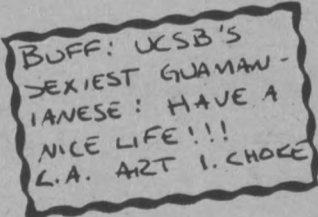 BUFF: UCSB'S
SEXIEST GUAMAN-
IANESE: HAVE A
NICE LIFE!!!
L.A. ART I. CHOKE